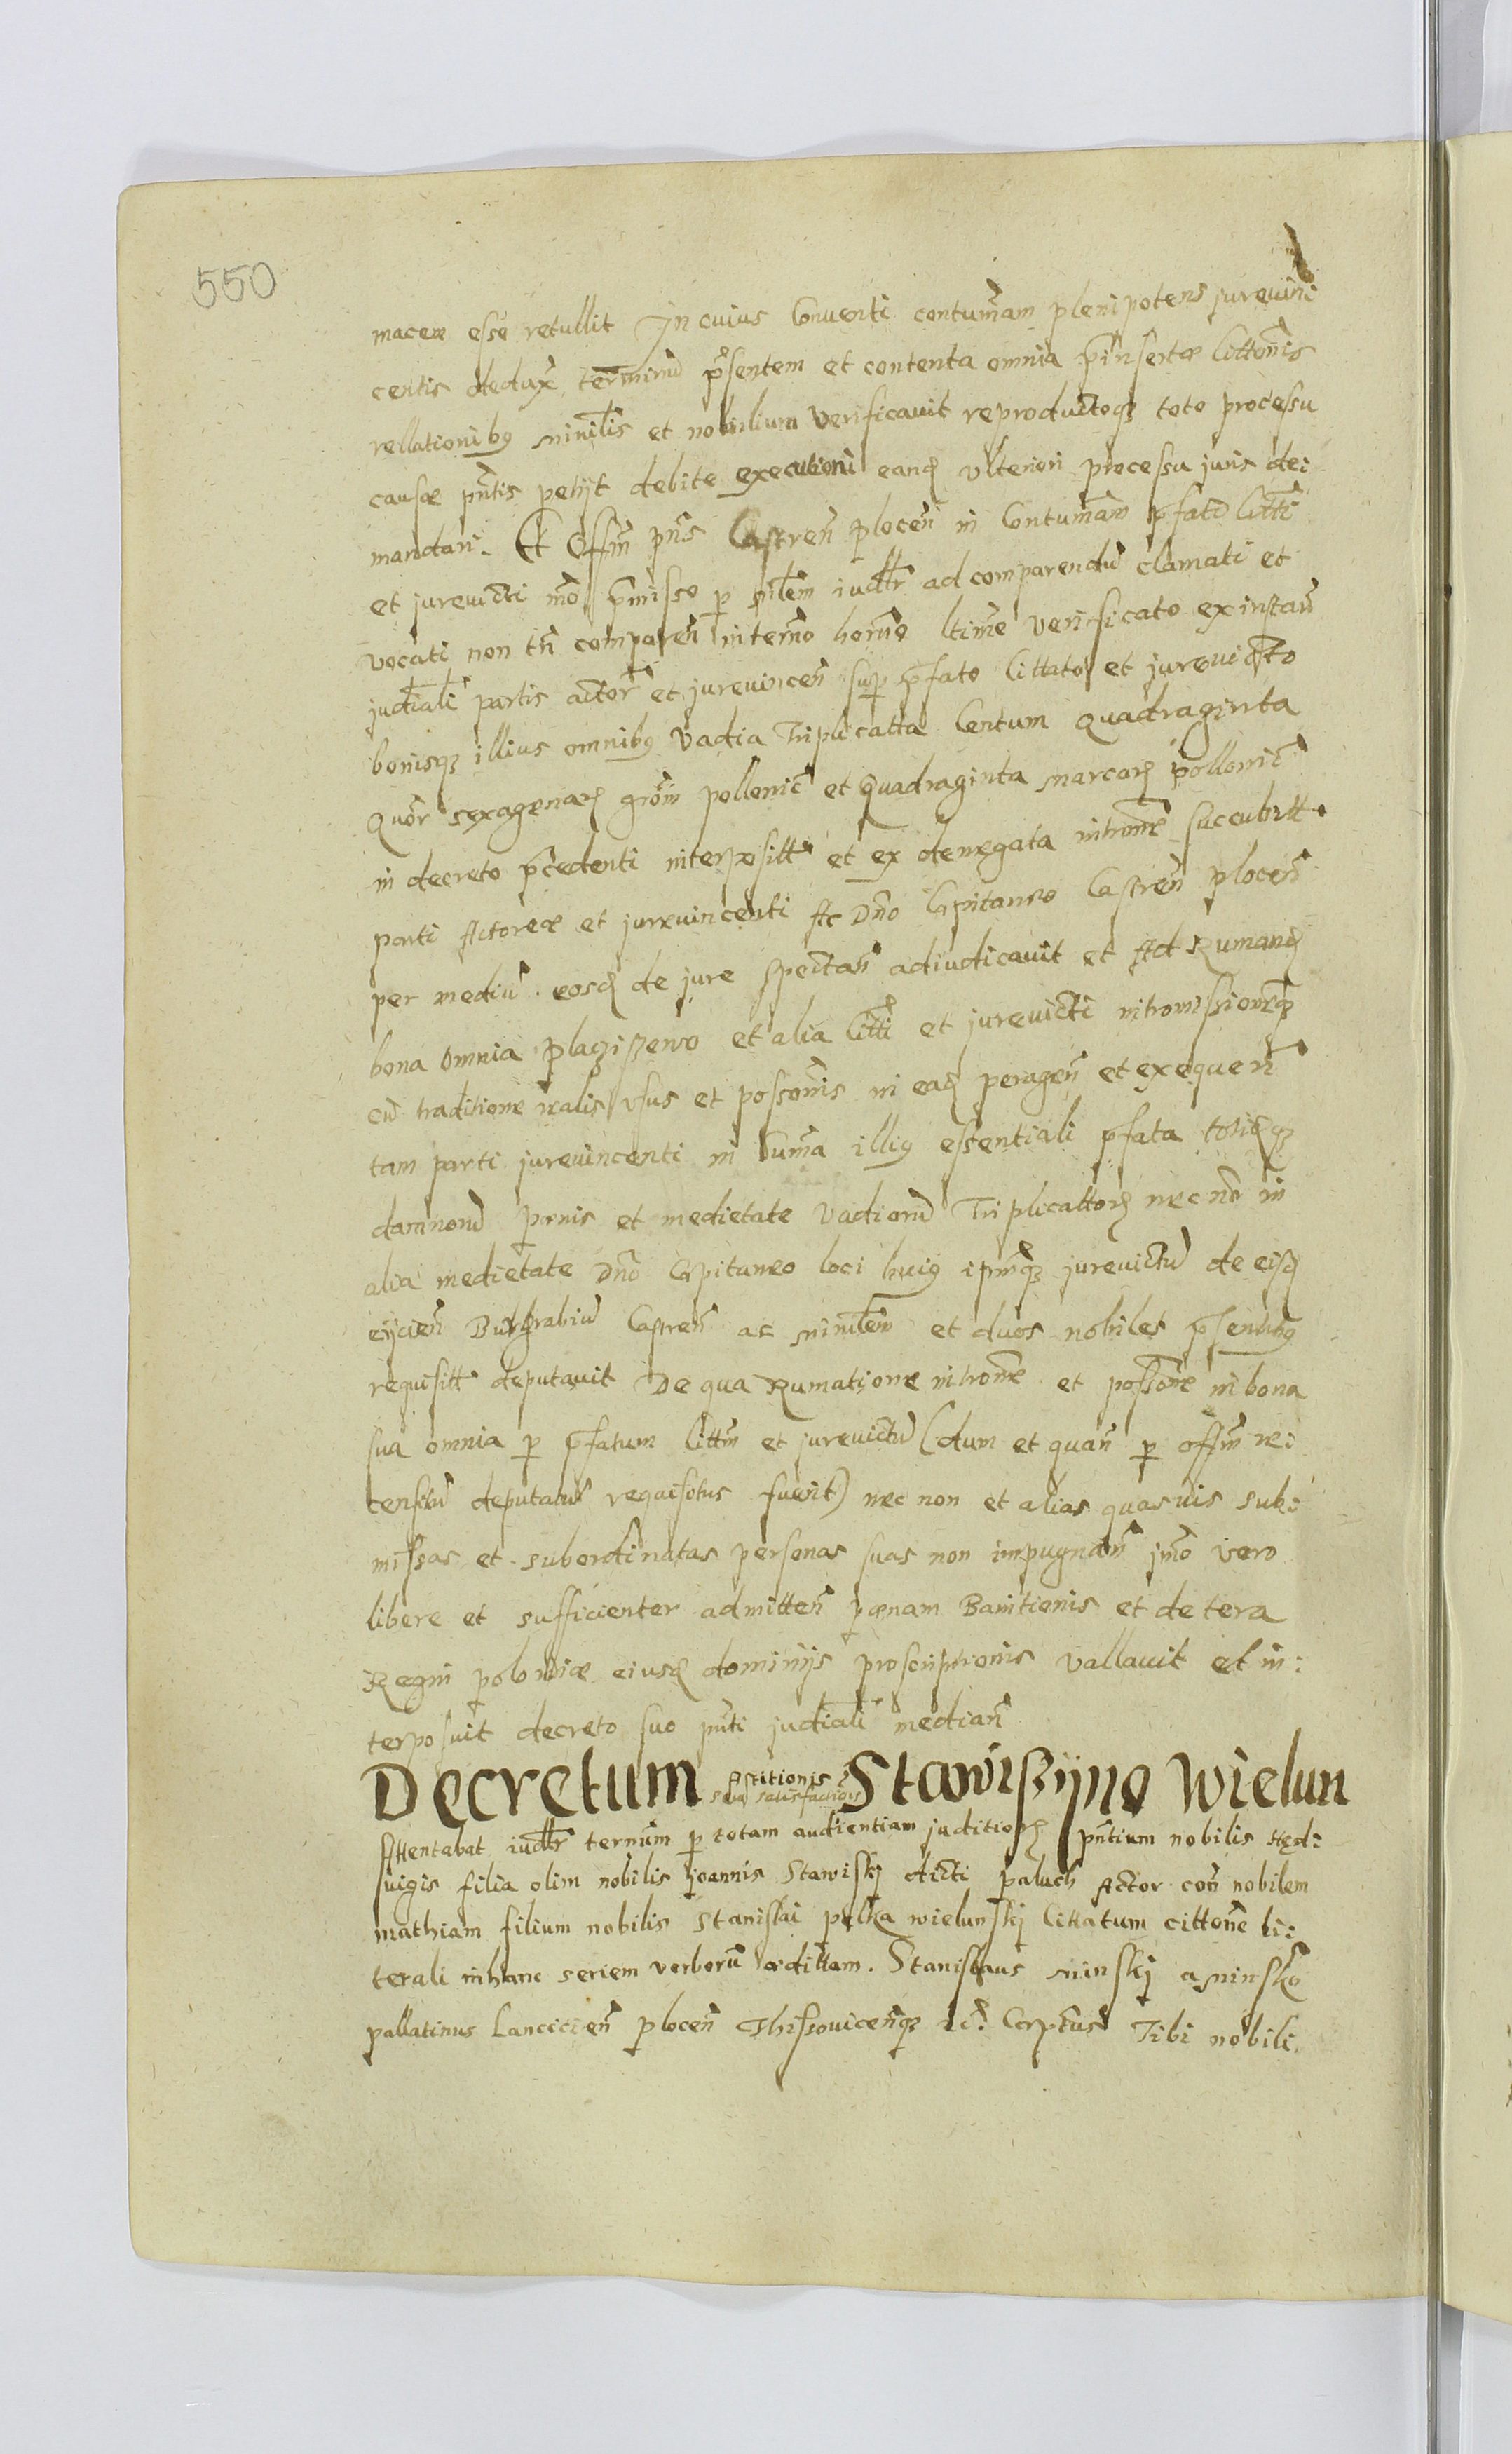 550
macem esse retullit In cuius Conventi contumãm plenipotens jurevin:
centis deduxẽ terminũ p̃sentem et contenta omnia p̃insertæ littõnis
rellationibꝫ ministr̃lis et nobilium verificavit reproductoqꝫ toto processu
causæ pñtis petijt debite executioni eandẽ ulteriori processu juris de:
mandari. Et Offm̃ pñs Castreñ plocẽn in Contumãm p̃fati litti
et jurevicti mõ p̃misso p mĩlem iudlr ad comparendũ clamati et
vocati non tñ compareñ in termõ hornõ ltime verificato ex instañ
judiali partis actor̃ et jurevinceñ sup p̃fato littato et jurevicto
bonisqꝫ illius omnibꝫ vadia Triplicatta Centum quadraginta
quor̃ sexagenarꝫ grom̃ pollonic̃ et Quadraginta marcarꝫ pollonic̃
in decreto p̃cedenti interposittã et ex denegata introm̃e succubitt.
parti Actoreæ et jurevincenti Ac Dno Capitaneo Castreñ plocẽn
per mediũ eosdẽ de jure spectañ adiudicavit et Ad Rumandẽ
bona omnia plaziszewo et alia litti et jurevicti intromissionẽqꝫ
cũ traditione realis usus et possonis in eadẽ perageñ et exequeñ
tam parti jurevincenti in sum̃a illiꝫ essentiali p̃fata totidẽqꝫ
damnorũ pænis et medietate vadiorũ Triplicattorꝫ nec nõ in
alia medietate Dno Capitaneo loci huiꝫ ipmqꝫ jurevictũ de eisdẽ
eijcieñ Burgrabiũ Castreñ ac minr̃lem et duos nobiles p̃sentibꝫ
requisitt deputavit De qua Rumatione introm̃e et possone in bona
sua omnia p p̃fatum littm̃ et jurevictũ (dum et quañ p offm̃ re:
censitũ deputatũ requisitus fuerit) nec non et alias quasvis sub:
missas et subordinatas personas suas non impugnañ jmõ vero
libere et sufficienter admitteñ pænam Banitionis et de tera
Regni poloniæ eiusdẽ dominijs proscriptionis vallavit et in:
terposuit decreto suo pñti judiali mediañ
Decretum Astitionis seu satisfactiõis Stawiszijna Wielun
Attentabat iudlr ternũm p totam audientiam juditiorꝫ pñtium nobilis Hed:
uigis filia olim nobilis Joannis Stawiskj dicti paluch Actor con̄ nobilem
mathiam filium nobilis Stanislai pulka wielunskj littatum cittone li:
terali in hanc seriem verborũ ædittam. Stanislaus minskj a minsko
pallatinus Lancicieñ plocẽn Thissovicenqꝫ &c. Captneus Tibi nobili